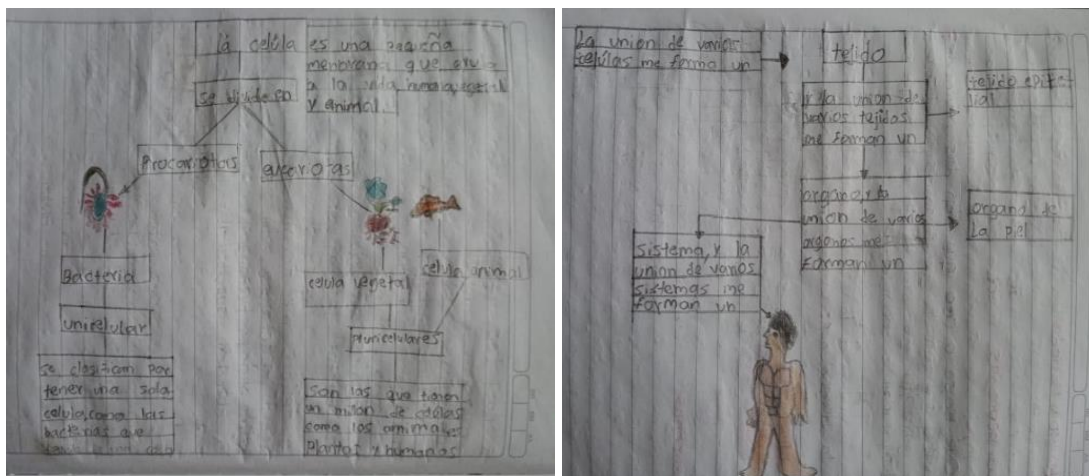 la celúla
es una pequeña
menbrana que
a la vida humana,
y animal.
se divide en
Procariotas
eucariotas
Bacteria
unicelular
se clasifican por
tener una sola
celula, como las
bacterias que
celula vegetal
celula animal
pluricelulares
Son las que tienen
un millon de celúlas
como los animales
Plantas y humanos
La union de varias
celúlas me forma un
tejido
y la union de
varios tejidos
me forman un
tejido epite-
lial
organo, y la
union de varios
organos me
forman un
organo de
La piel
sistema, y la
union de varios
sistemas me
forman un